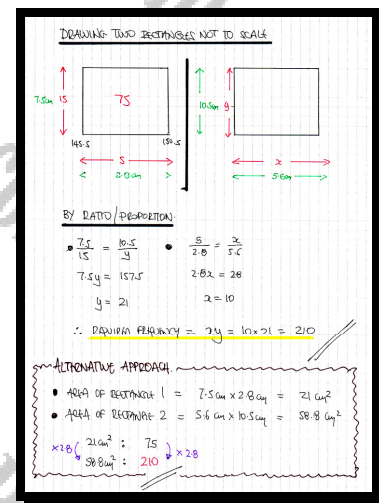 DRAWING TWO RECTANGLES NOT TO SCALE
7.5cm 15 75 10.5cm y
145.5 150.5
5 x
2.8cm 5.6cm
BY RATIO/PROPORTION.
• 7.5/15 = 10.5/y • 5/2.8 = x/5.6
7.5y = 157.5 2.8x = 28
y = 21 x = 10
∴ REQUIRED FREQUENCY = xy = 10×21 = 210
ALTERNATIVE APPROACH.
• AREA OF RECTANGLE 1 = 7.5cm × 2.8cm = 21cm²
• AREA OF RECTANGLE 2 = 5.6cm × 10.5cm = 58.8cm²
×2.8 21cm² : 75 ×2.8
58.8cm² : 210